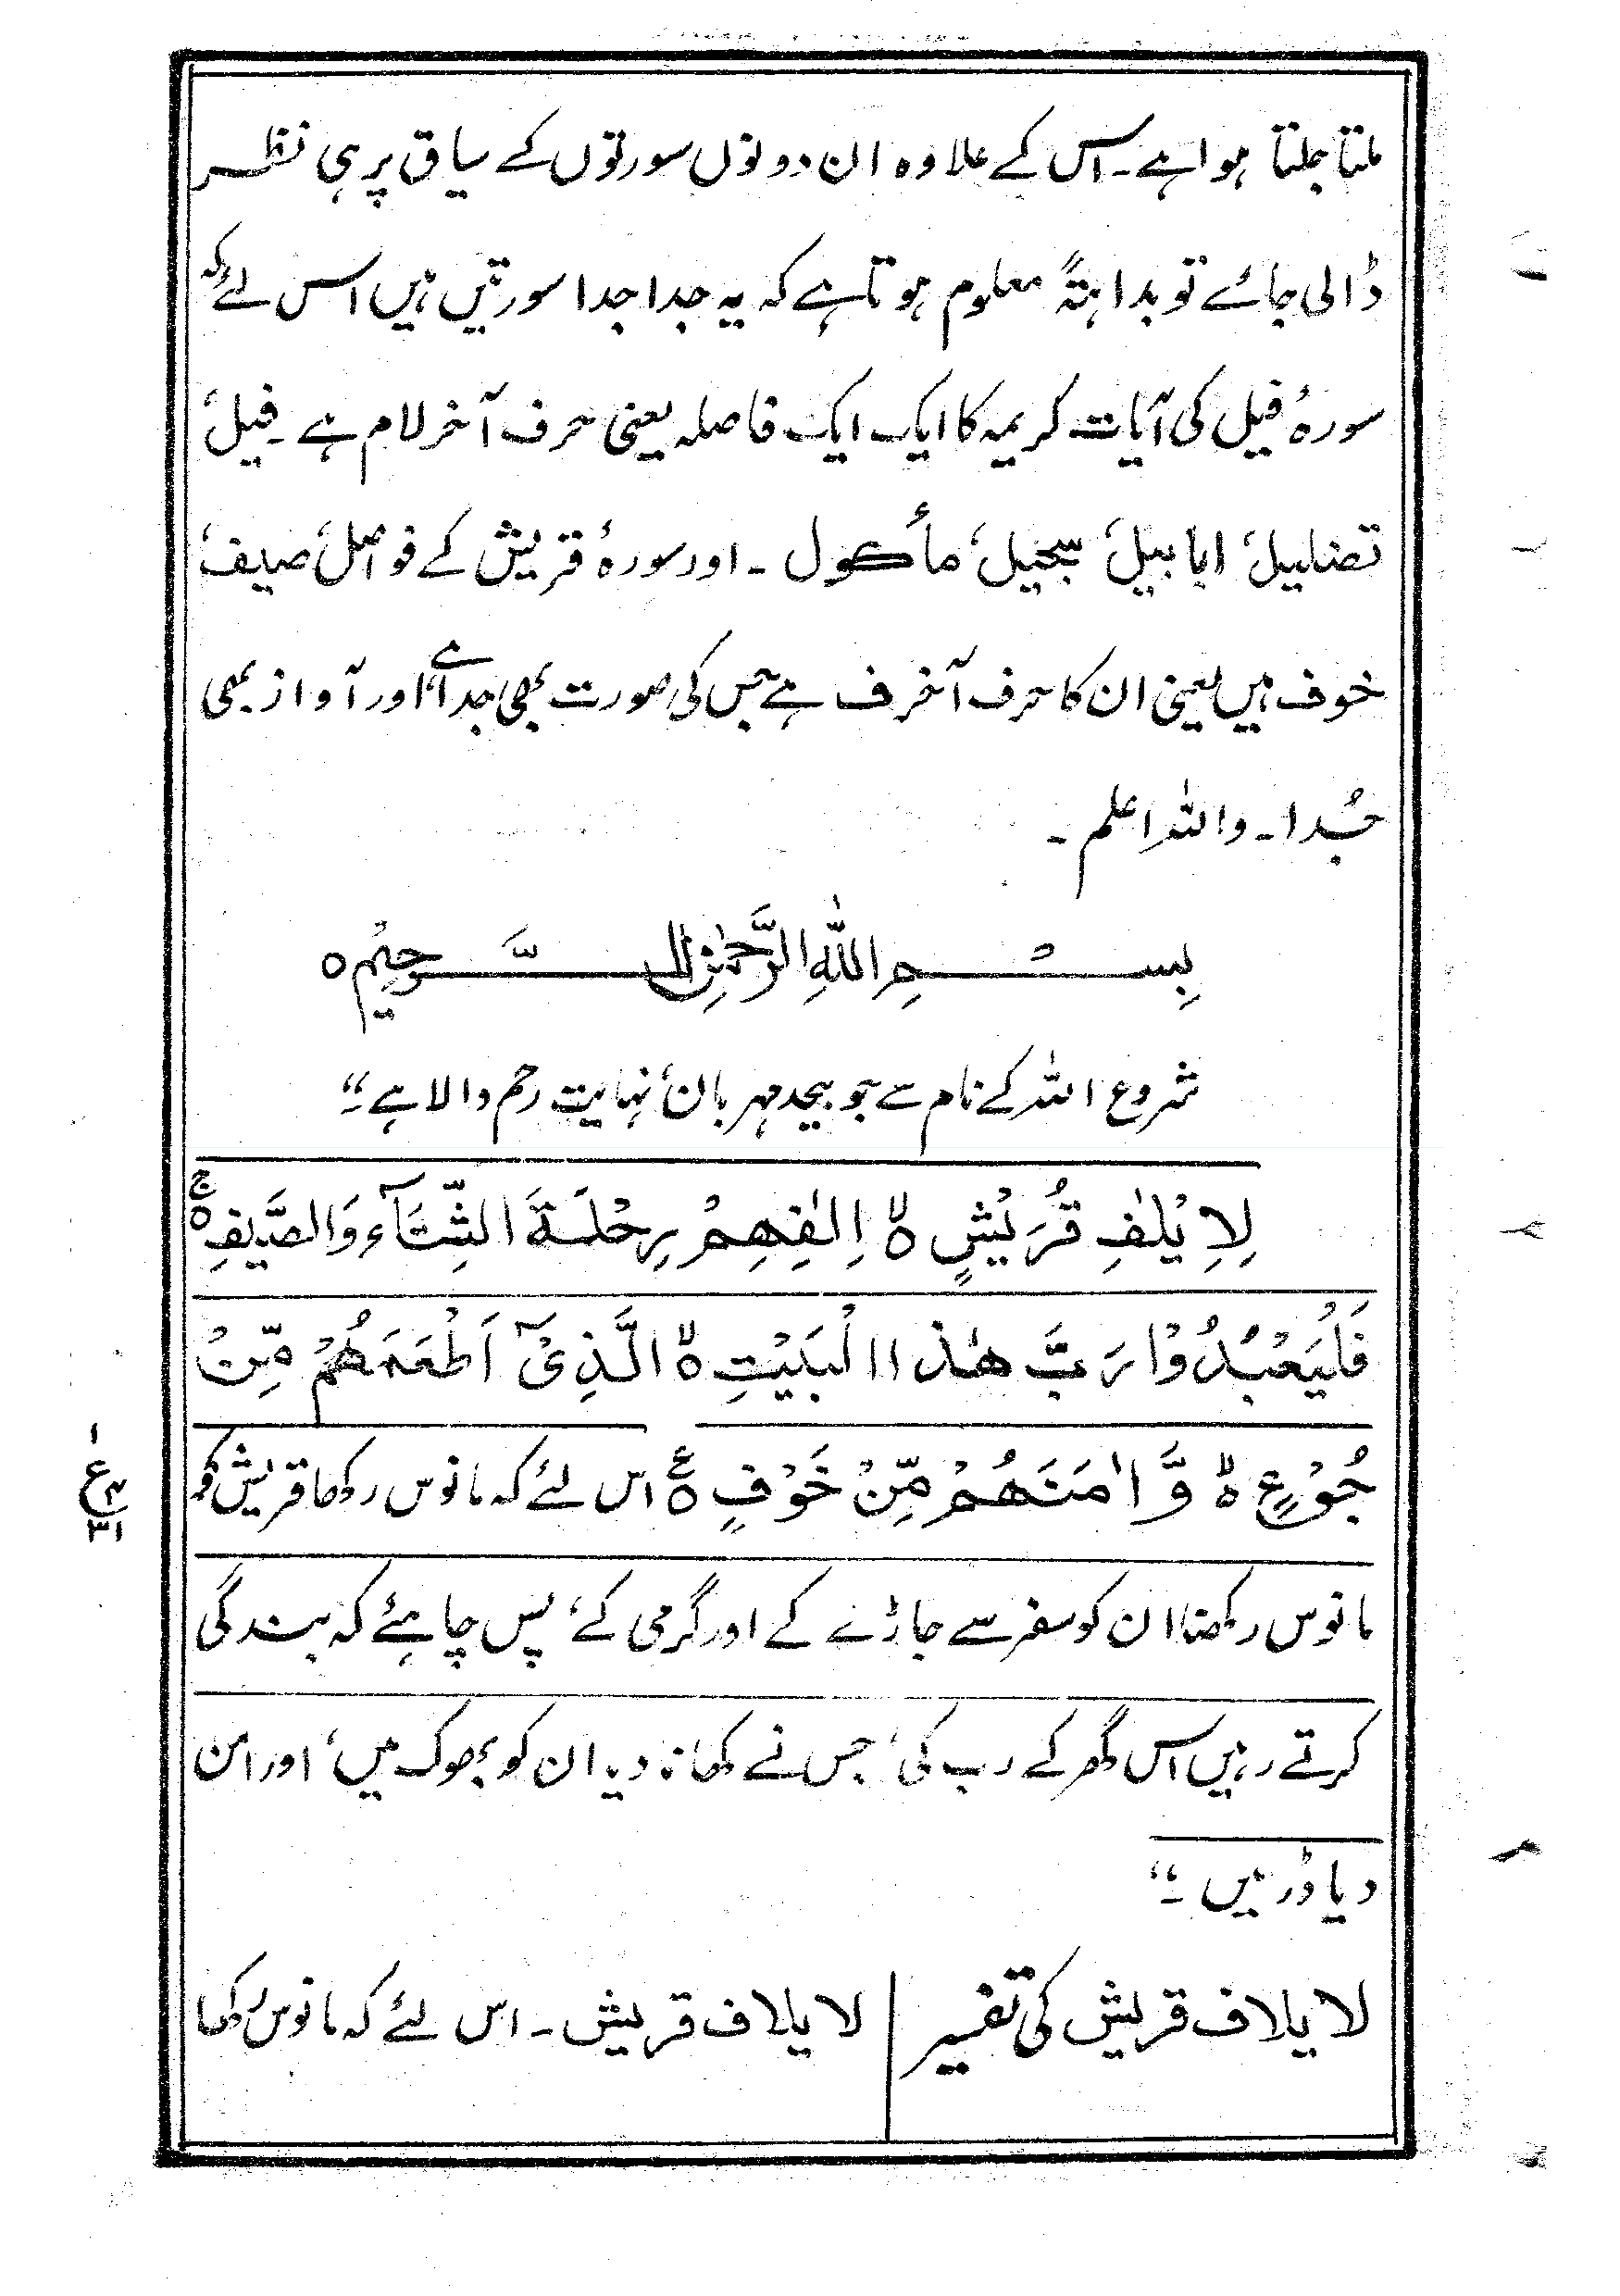 ملتا جلتا ہوا ہے۔ اس کے علاوہ ان دونوں سورتوں کے سیاق پر ہی نظر
ڈالی جائے تو بداہتہً معلوم ہوتا ہے کہ یہ جدا جدا سورتیں ہیں اس لئے کہ
سورۂ فیل کی آیات کریمہ کا ایک ایک فاصلہ یعنی حرف آخر لام ہے۔ فیل،
تضلیل، ابابیل، سجیل، مأکول ۔ اور سورۂ قریش کے فواصل، صیف،
خوف ہیں یعنی ان کا حرف آخر ف ہے جس کی صورت بھی جدا ہے اور آواز بھی
جُدا۔ واللہ اعلم ۔
بِسْمِ اللّٰهِ الرَّحْمٰنِ الرَّحِيْمِ ○
شروع اللہ کے نام سے جو بیحد مہربان، نہایت رحم والا ہے۔"
لِاِيْلٰفِ قُرَيْشٍ ۙ○ اٖلٰفِهِمْ رِحْلَةَ الشِّتَآءِ وَالصَّيْفِ ۚ○
فَلْيَعْبُدُوْا رَبَّ هٰذَا الْبَيْتِ ۙ○ الَّذِيْٓ اَطْعَمَهُمْ مِّنْ
جُوْعٍ ۙ○ وَّاٰمَنَهُمْ مِّنْ خَوْفٍ ○ع اس لئے کہ مانوس رکھا قریش کو
مانوس رکھنا ان کو سفر سے جاڑے کے اور گرمی کے، پس چاہئے کہ بندگی
کرتے رہیں اس گھر کے رب کی، جس نے کھانا دیا ان کو بھوک میں، اور امن
دیا ڈر میں۔"
۱
ع
۳۱
لا یلاف قریش کی تفسیر
لا یلاف قریش۔ اس لئے کہ مانوس رکھا